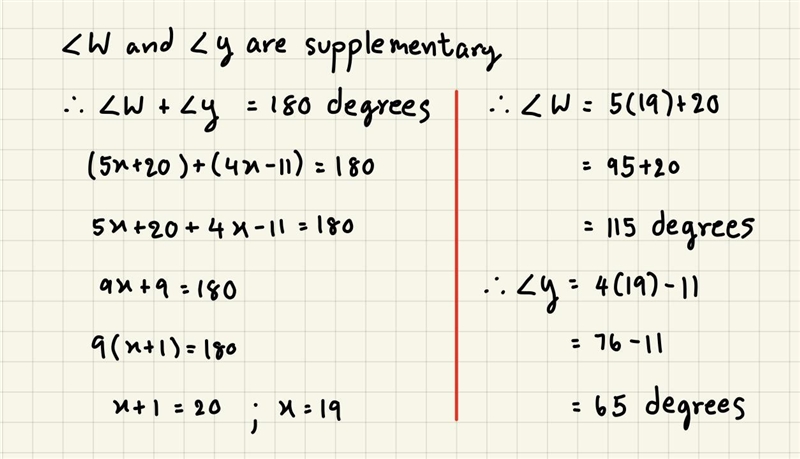 ∠W and ∠y are supplementary
∴ ∠W + ∠y = 180 degrees
(5x+20)+(4x-11) = 180
5x+20+4x-11 = 180
9x+9 = 180
9(x+1) = 180
x+1 = 20 ; x = 19
∴ ∠W = 5(19)+20
= 95+20
= 115 degrees
∴ ∠y = 4(19)-11
= 76-11
= 65 degrees